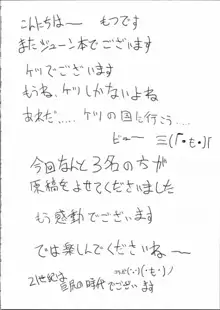 こんにちは〜 もつです
またジューン本でございます
ケツでございます
もうね、ケツしかないよね
あれだ……ケツの国に行こう…
ビュー 三(「・も・)「
今回なんと3名の方が
原稿をよせてくださいました
もう感動でございます
では楽しんでくださいね〜
21世紀は
の時代でございます
(・も・)ノ